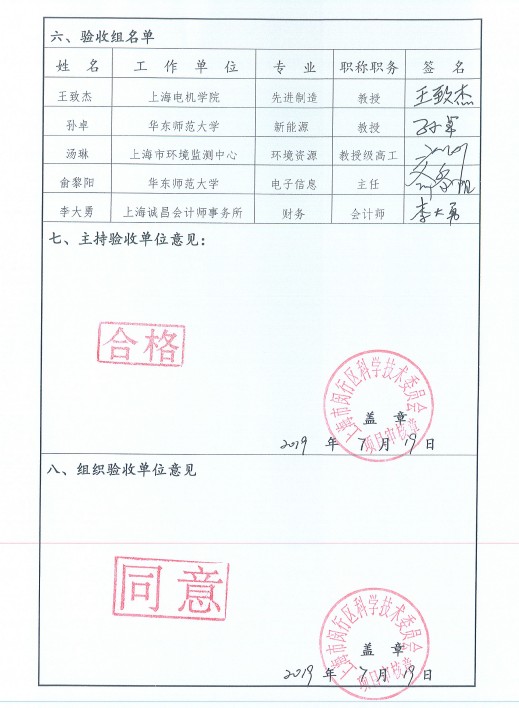 六、验收组名单
姓 名 工 作 单 位 专 业 职称职务 签 名
王致杰 上海电机学院 先进制造 教授 王致杰
孙卓 华东师范大学 新能源 教授 孙卓
汤琳 上海市环境监测中心 环境资源 教授级高工
俞黎阳 华东师范大学 电子信息 主任
李大勇 上海诚昌会计师事务所 财务 会计师 李大勇
七、主持验收单位意见：
合格
上海市闵行区科学技术委员会
项目审核章
盖 章
2019 年 7 月 19 日
八、组织验收单位意见
同意
上海市闵行区科学技术委员会
项目审核章
盖 章
2019 年 7 月 19 日